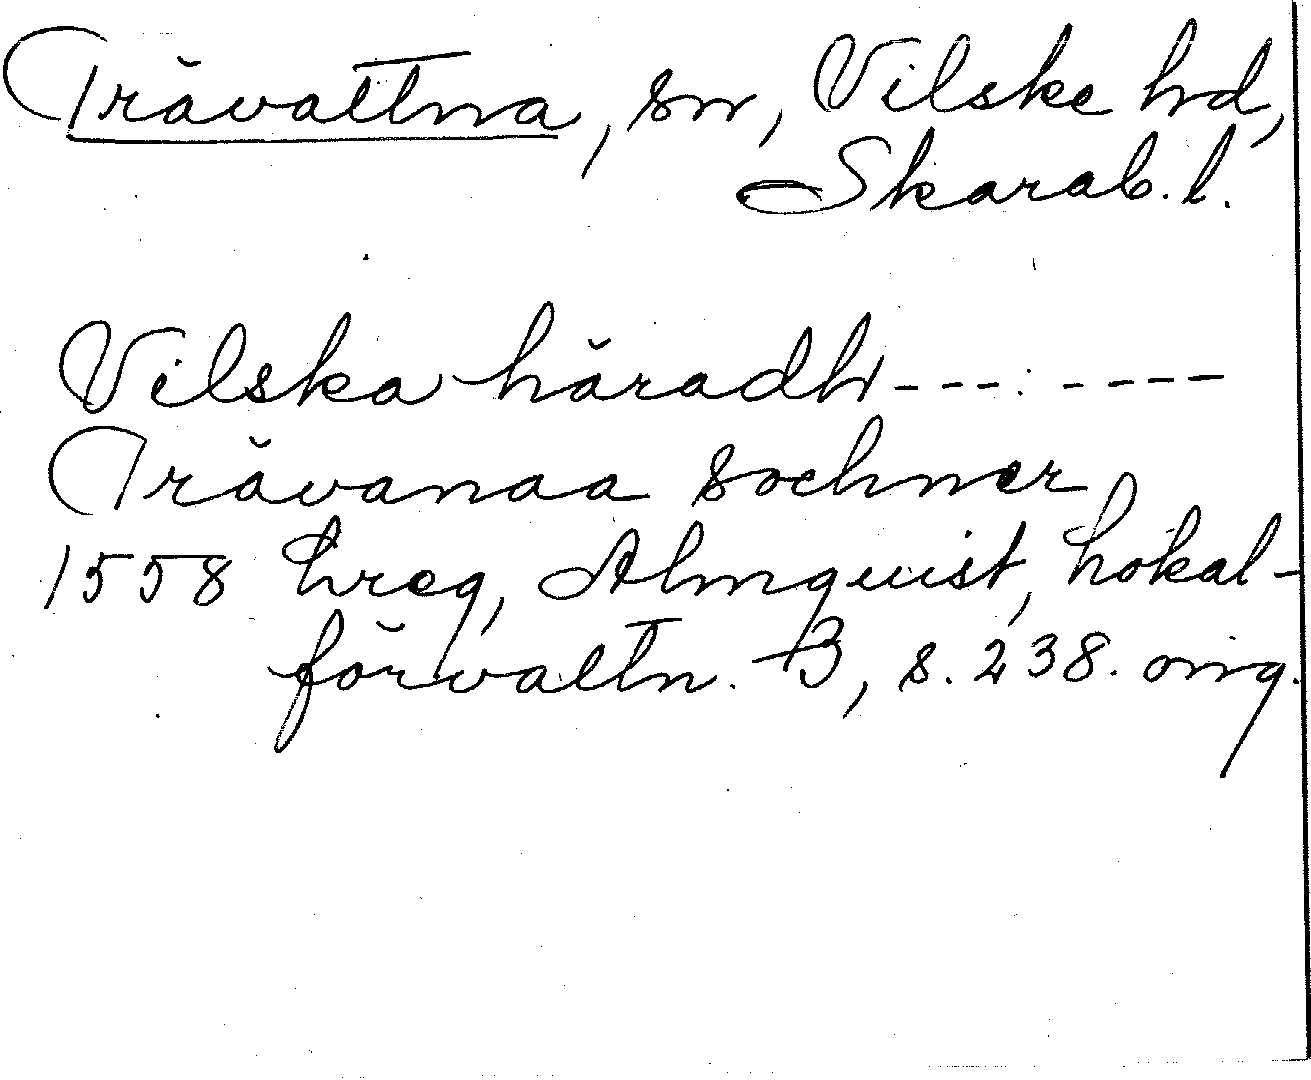 Trävattna, sn, Vilske hd,
Skarab. l.
Vilska häradh - - - : - - - -
Trävanaa sochner
1558 hreg, Almquist, Lokal-
förvaltn. B, s. 238. orig.